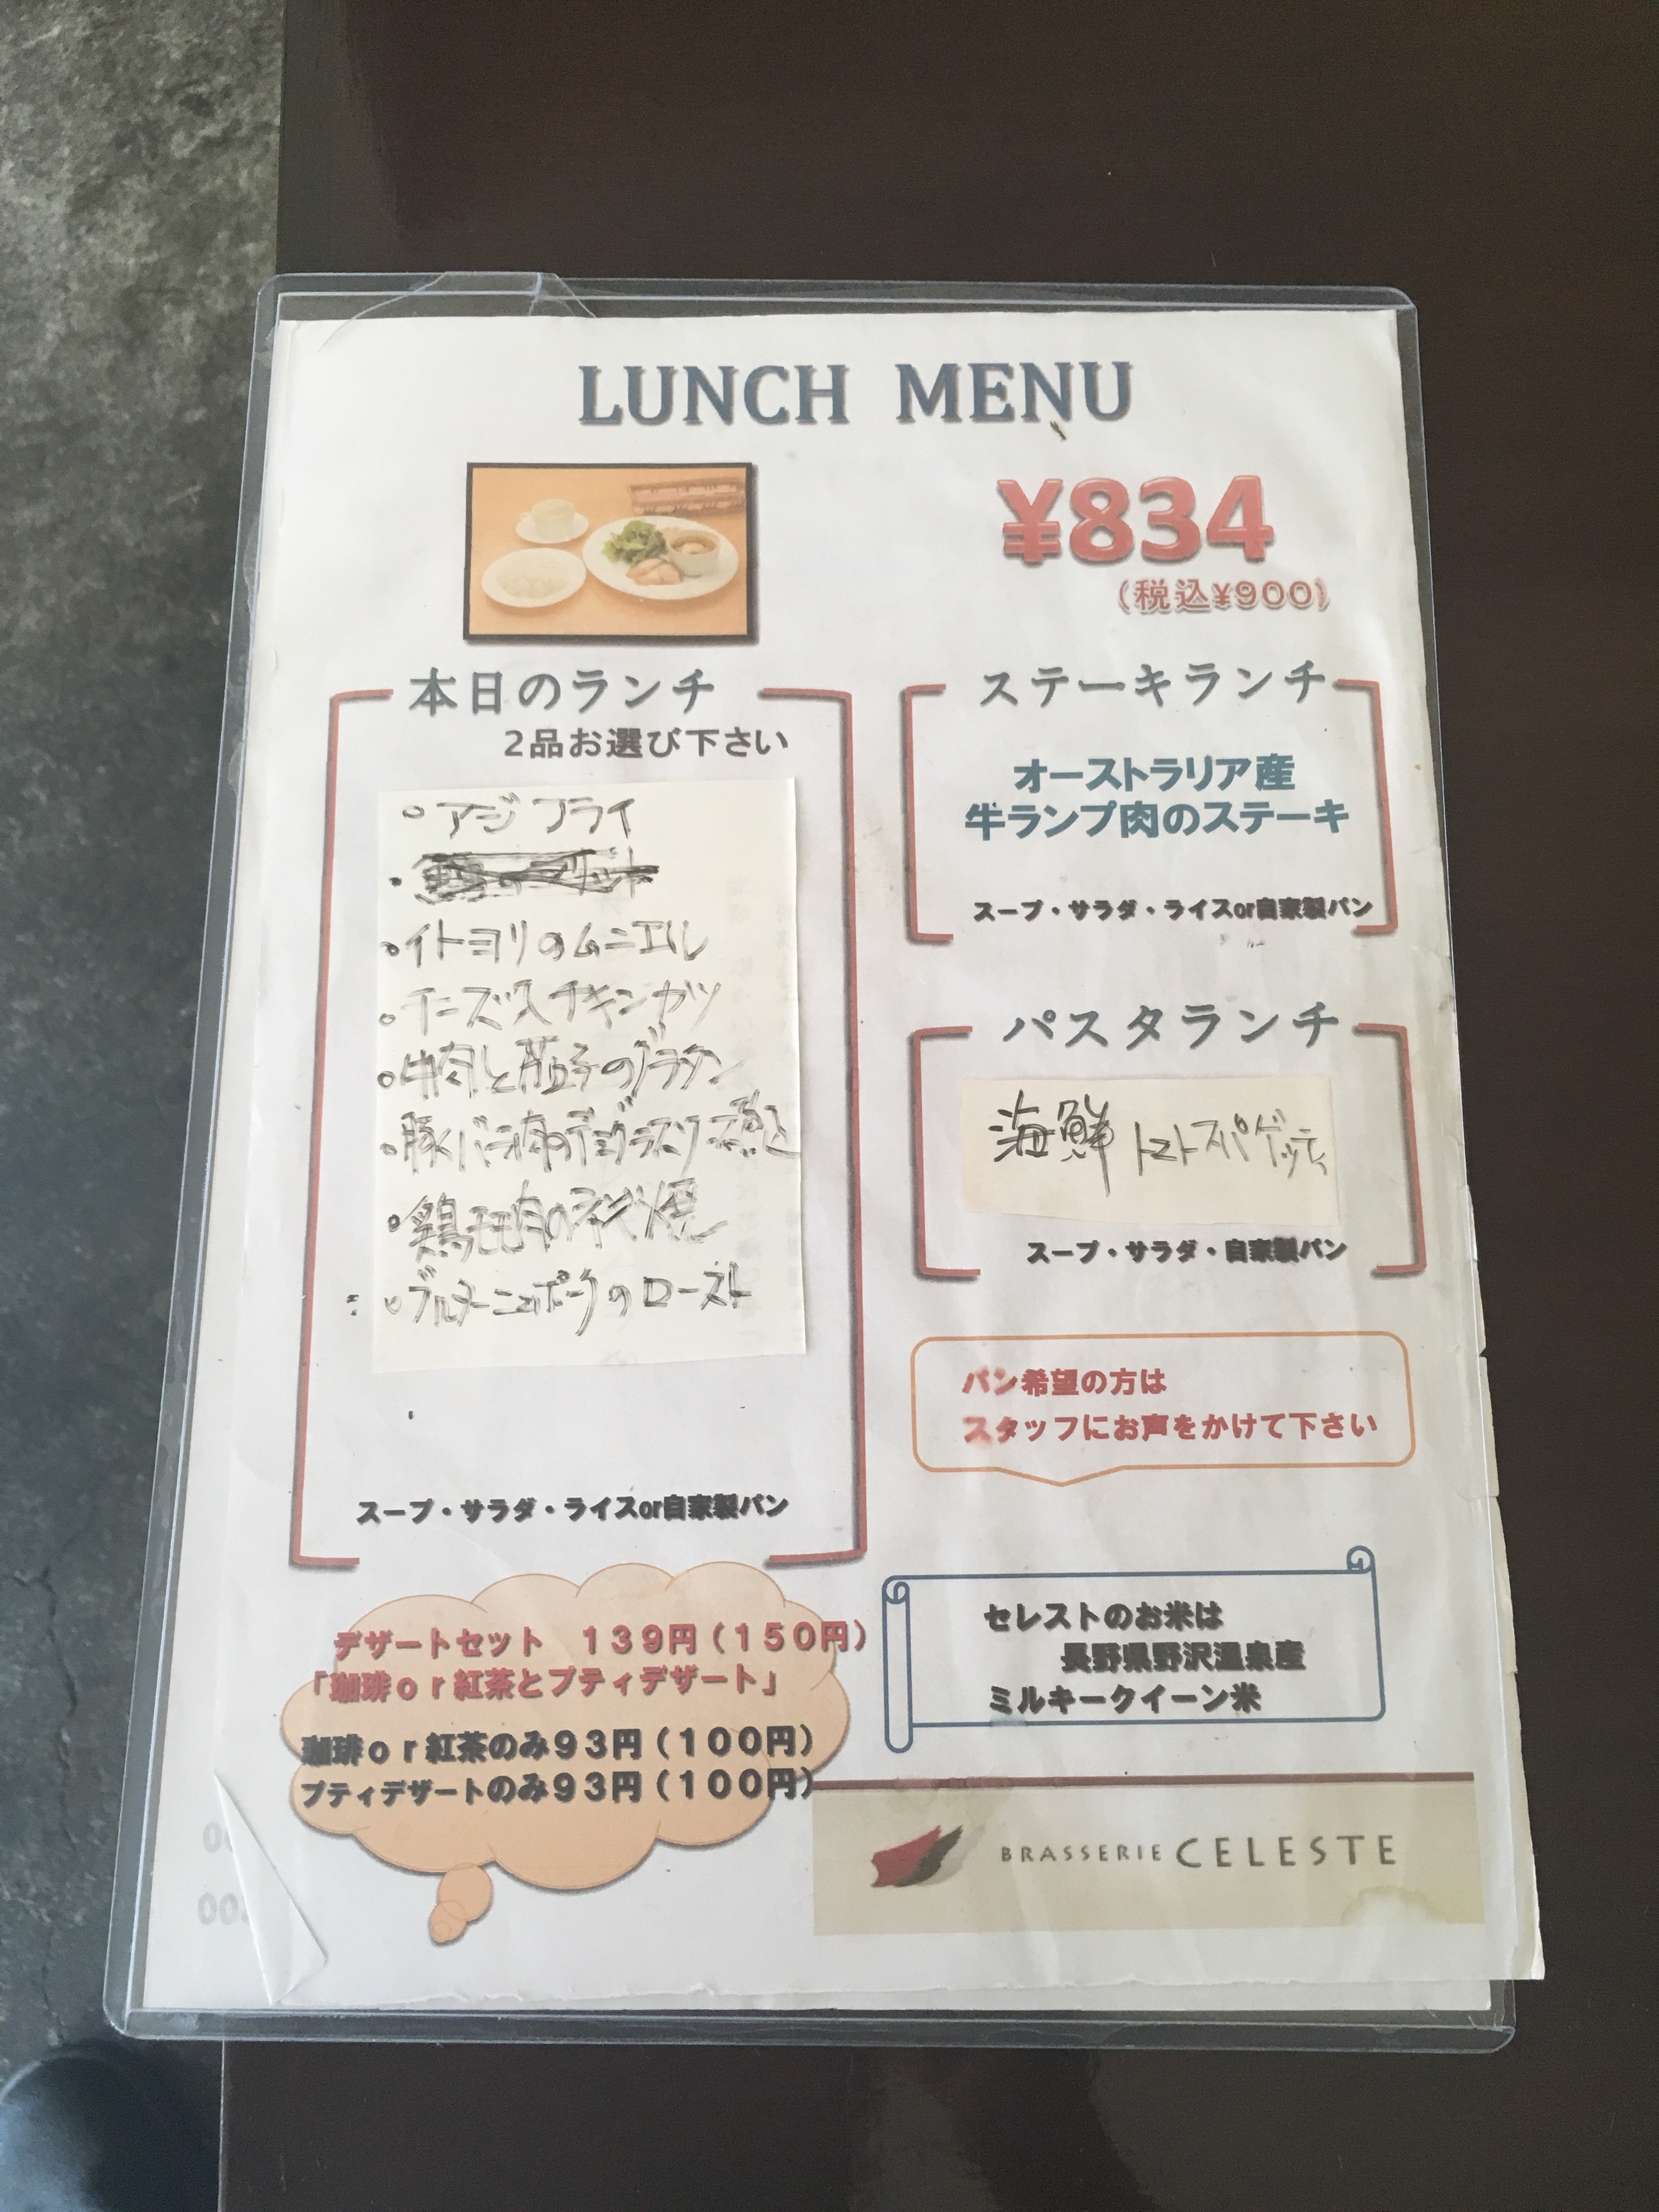 LUNCH MENU
¥834
(税込¥900)
本日のランチ
2品お選び下さい
アジフライ
イトヨリのムニエル
チーズ入チキンカツ
牛肉と茄子のグラタン
豚バラ肉のデミグラスソース煮込
鶏モモ肉のネギ焼
ブルターニュポークのロースト
スープ・サラダ・ライスor自家製パン
ステーキランチ
オーストラリア産
牛ランプ肉のステーキ
スープ・サラダ・ライスor自家製パン
パスタランチ
海鮮トマトスパゲッティ
スープ・サラダ・自家製パン
パン希望の方は
スタッフにお声をかけて下さい
デザートセット 139円(150円)
「珈琲or紅茶とプティデザート」
珈琲or紅茶のみ93円(100円)
プティデザートのみ93円(100円)
セレストのお米は
長野県野沢温泉産
ミルキークイーン米
BRASSERIE CELESTE